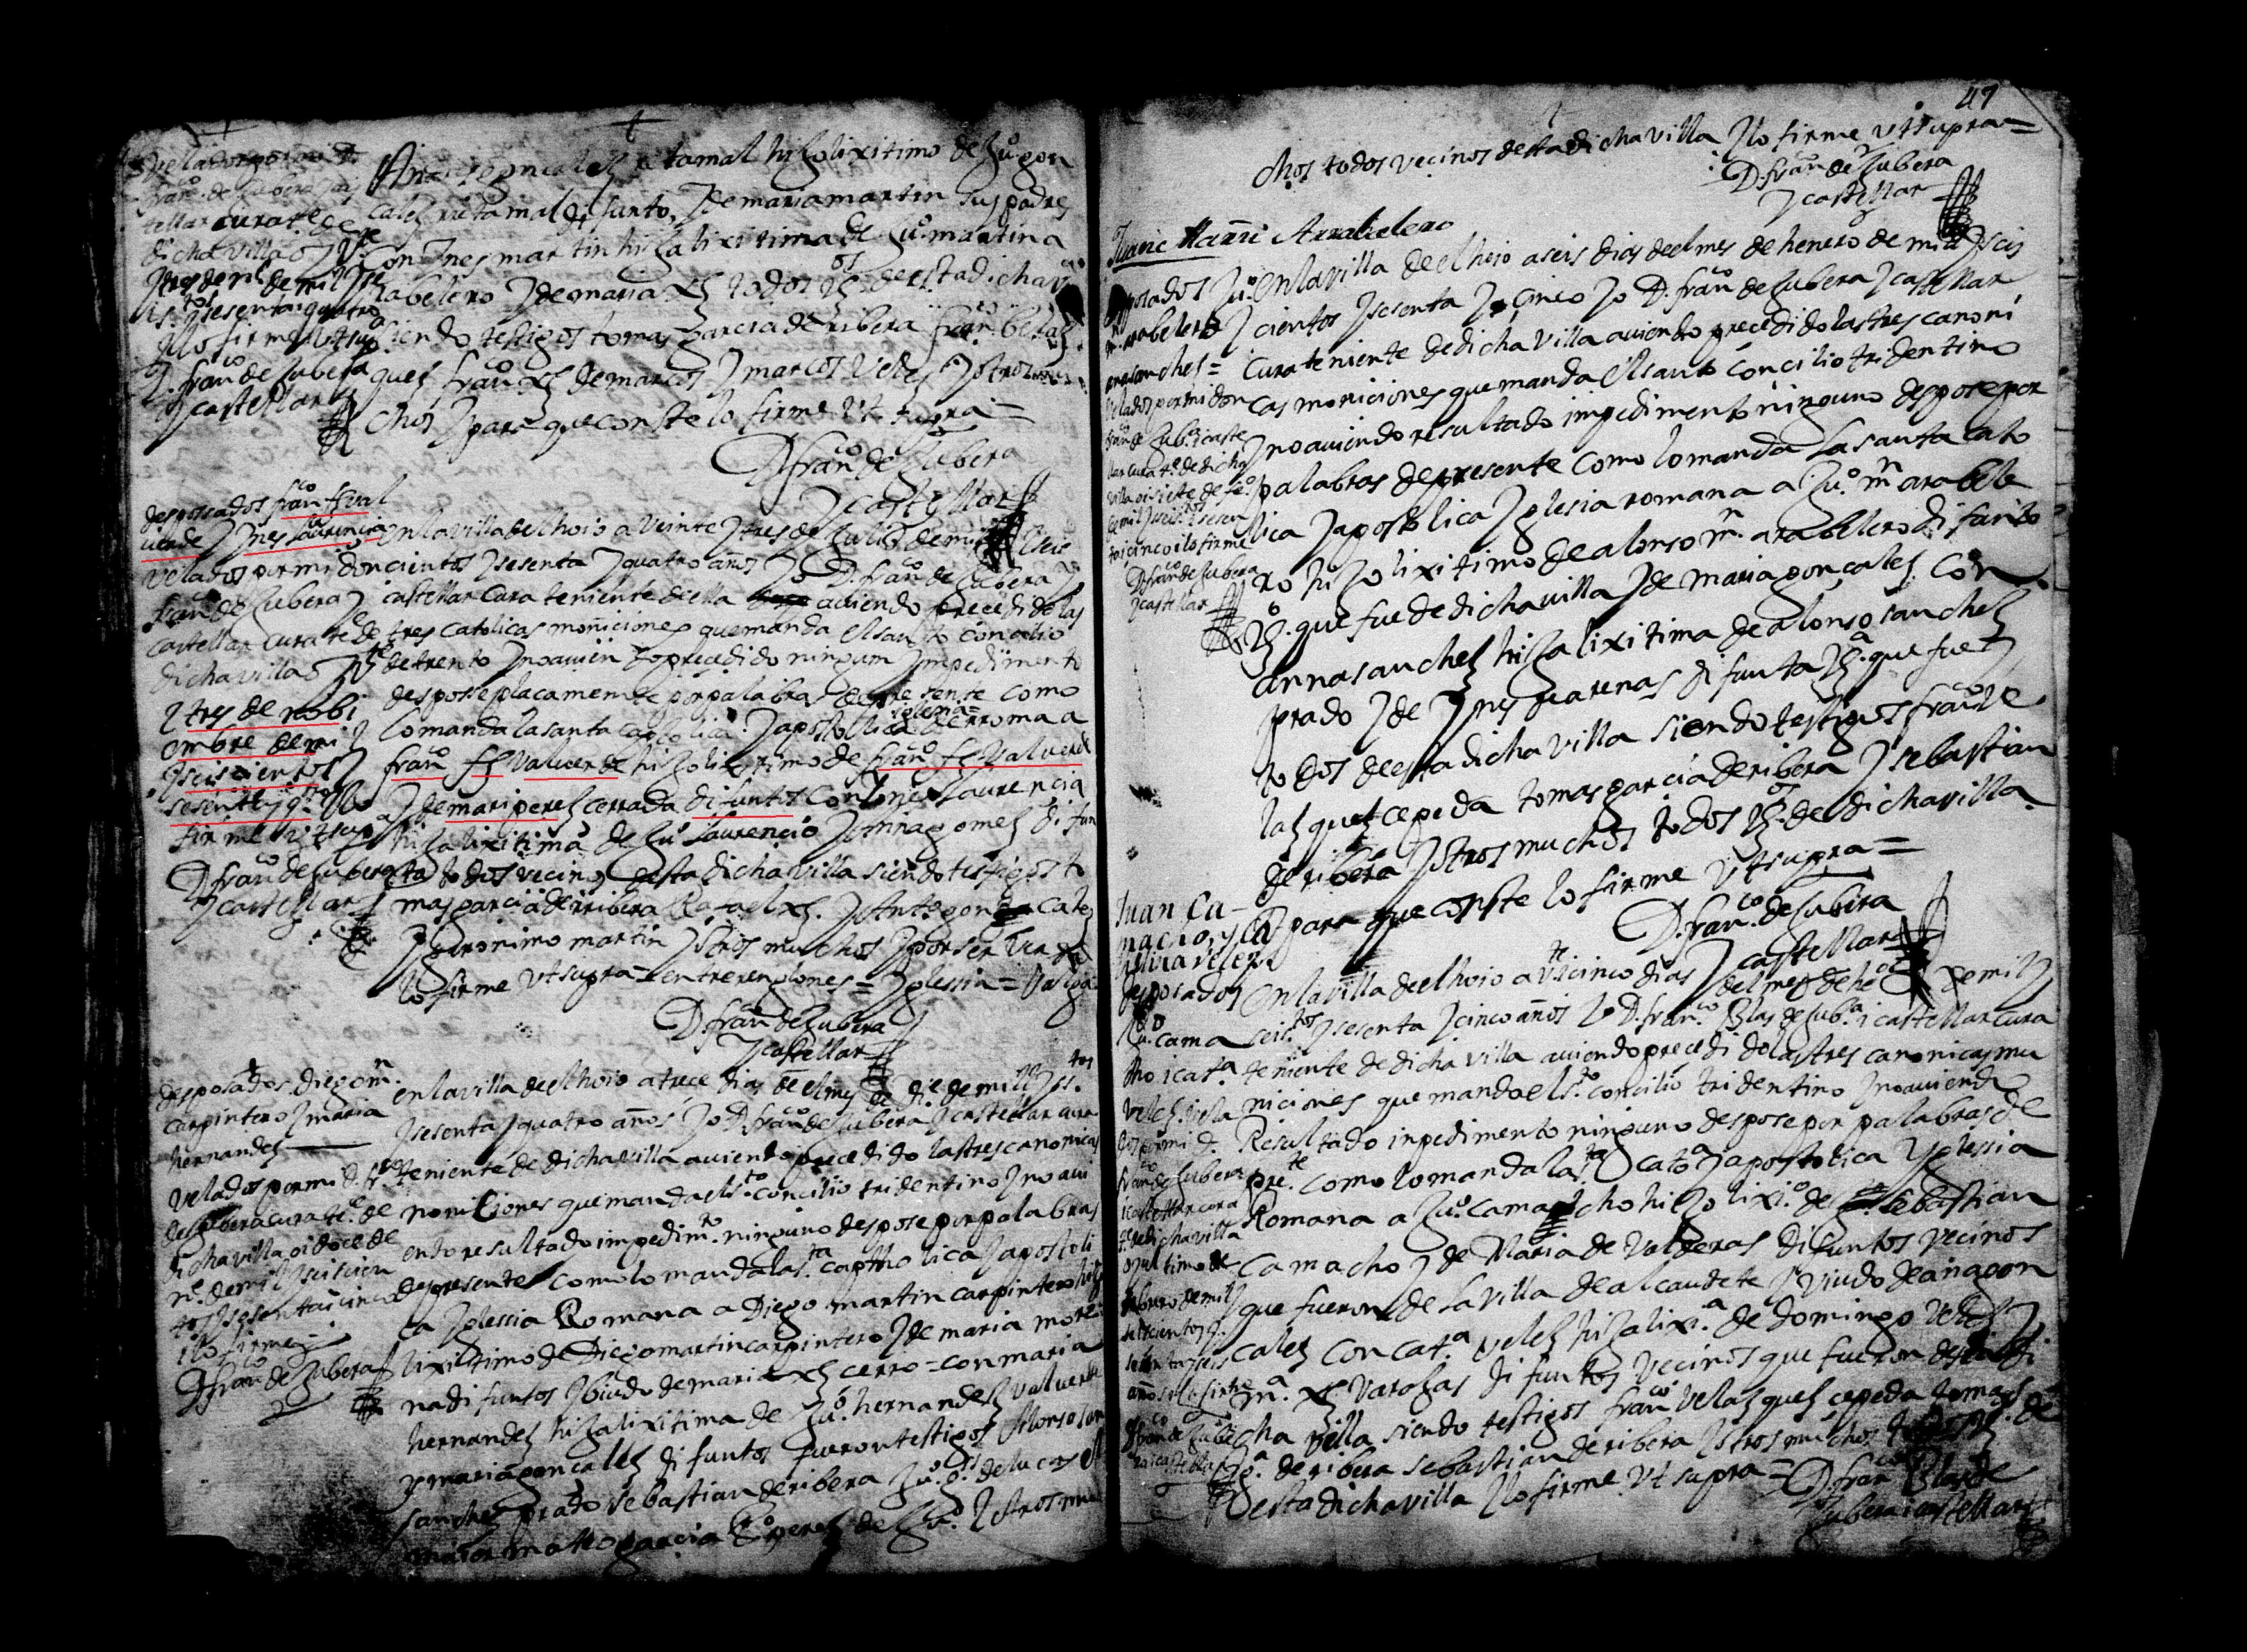 velados por mi D.
fran.co de Zubera i cas
tellar cura te. de
dicha villa
de mil y se
is.tos y sesenta i quatro
y lo firme ut supra
D. fran.co de Zubera
y castellar
gonçalez retamal hiJo lixitimo de Ju.o gon
calez retamal difunto, y de maria martin sus padres
con Ynes martin hiJa lixitima de Ju.o martin a
rabelero y de maria xz todos vz.os de esta dicha vi
siendo testigos tomas garcia de ribera fran.co belaz
quez fran.co xz de marcos y marcos velez y otros mu
chos y para que conste lo firme ut supra =
D. fran.co de Zubera
y castellar
desposados fran.co fz val
uerde y Ynes laurencia
velados por mi don
fran.co de Zubera y
castellar cura te de
dicha villa oy vte
y tres de nobi
embre de mil
y seiscientos y
sesenta y q.tro y lo
firme ut supra
D. fran.co de Zubera
y castellar
en la villa del hoio a veinte y tres de Julio de mil y seis
cientos y sesenta y quatro años yo D. fran.co de Zubera y
castellar cura teniente de ella auiendo precedido las
tres catolicas moniciones que manda el santo concilio
de trento y no auiendo precedido ningun ynpedimento
despose placamente por palabras de presente como
lo manda la santa catolica y apostolica yglesia = de rroma a
fran.co fz valuerde hiJo lixitimo de fran.co fz valuerde
y de mari perez cerrada difuntos con Ynes Laurencia
hiJa lixitima de Ju.o laurencio y anna gomez difun
ta todos vecinos desta dicha villa siendo testigos to
mas garcia de rribera Rafael xz. y Anto gon calez
y geronimo martin y otros muchos y por ser verdad
lo firme ut supra = entre renglones = yglessia = valga =
D. fran.co de Zubera
y castellar
desposados diego m.n
carpintero y maria
hernandez
velados por mi D. fr.co
de Zubera cura te. de
dicha villa oi doce de
m.o de mil y seiscien
tos y sesenta i cinco
i lo firme =
D. fran.co de Zubera
en la villa de el hoio a trece dias de el mes de di.e de mill y ss.tos
y sesenta y quatro años yo D. fran.co de Zubera y castellar cura
teniente de dicha villa auiendo precedido las tres canonicas
moniciones que manda el s.to concilio tridentino y no aui
endo resultado impedim.to ninguno despose por palabras
de presente como lo manda la s.ta catholica y apostoli
ca yglessia Romana a Diego martin carpintero hijo
lixitimo de Diego martin carpintero y de maria more
na difuntos y biudo de maria xz cerro = con maria
hernandez hiJa lixitima de Ju.o hernandez valuerde
y maria gonçalez difuntos fueron testigos Alonso san
chez prado sebastian de ribera Ju.o g.s de lucas el
maior matheo garcia Ju.o perez de Ju.o y otros mu
47
chos todos vecinos desta dicha villa y lo firme ut supra =
D. fran.co de Zubera
y castellar
Juan Marn Arrabelero
desposados Ju.o
m.n arabelero y
ana sanches =
velados por mi don
fran.co de Zub.a i caste
llar cura te. de dicha
villa oi siete de fe.o
de mil y seis.tos y sesen
ta i cinco i lo firme
D. fran.co de Zubera
y castellar
en la villa de el hoio a seis dias de el mes de henero de mill y seis
cientos y sesenta y cinco yo D. fran.co de Zubera y castellar
cura teniente de dicha villa auiendo precedido las tres canoni
cas moniciones que manda el santo concilio tridentino
y no auiendo resultado impedimento ninguno despose por
palabras de presente como lo manda la santa cato
lica y apostolica yglesia romana a Ju.o m.n arabele
ro hiJo lixitimo de alonso m.n arabelero difunto
vz.o que fue de dicha villa y de maria gonçalez con
anna sanchez hiJa lixitima de alonso sanchez
prado y de Ynes marenas difunta vz.a que fue y
todos de esta dicha villa siendo testigos fran.co ve
lazquez cepeda tomas garcia de ribera y sebastian
de ribera y otros muchos todos vz.os de dicha villa
y para que conste lo firme ut supra =
D. fran.co de Zubera
y castellar
Juan Ca-
macho, y Ca
thalina velez
desposados
Ju.o cama
cho i cat.a
velez vela
dos por mi D.
fran.co de Zubera
i castellar cura
te. de dicha villa
oy ultimo de
febrero de mil
seiscientos y
sesenta y seis
años i lo firme
en la villa de el hoio a vte i cinco dias del mes de he.o de mil y
seis.tos y sesenta y cinco años yo D. fran.co Blas de Zub.a i castellar cura
teniente de dicha villa auiendo precedido las tres canonicas mu
niciones que manda el s.to concilio tridentino y no auiendo
Resultado inpedimento ninguno despose por palabras de
pre.te como lo manda la s.ta cato.a y apostolica yglessia
Romana a Ju.o camacho hiJo lixi.o de sebastian
camacho y de Maria de Valderas difuntos vecinos
que fueron de la villa de alcaudete y viudo de ana gon
calez con cat.a velez hiJa lixi.a de domingo velez y
m.a xz varojas difuntos vecinos que fueron desta di
cha villa siendo testigos fran.co velazquez cepeda tomas
g.a de ribera sebastian de ribera y otros muchos todos vz.os de
esta dicha villa y lo firme ut supra = D. fran.co Blas de
Zubera i castellar